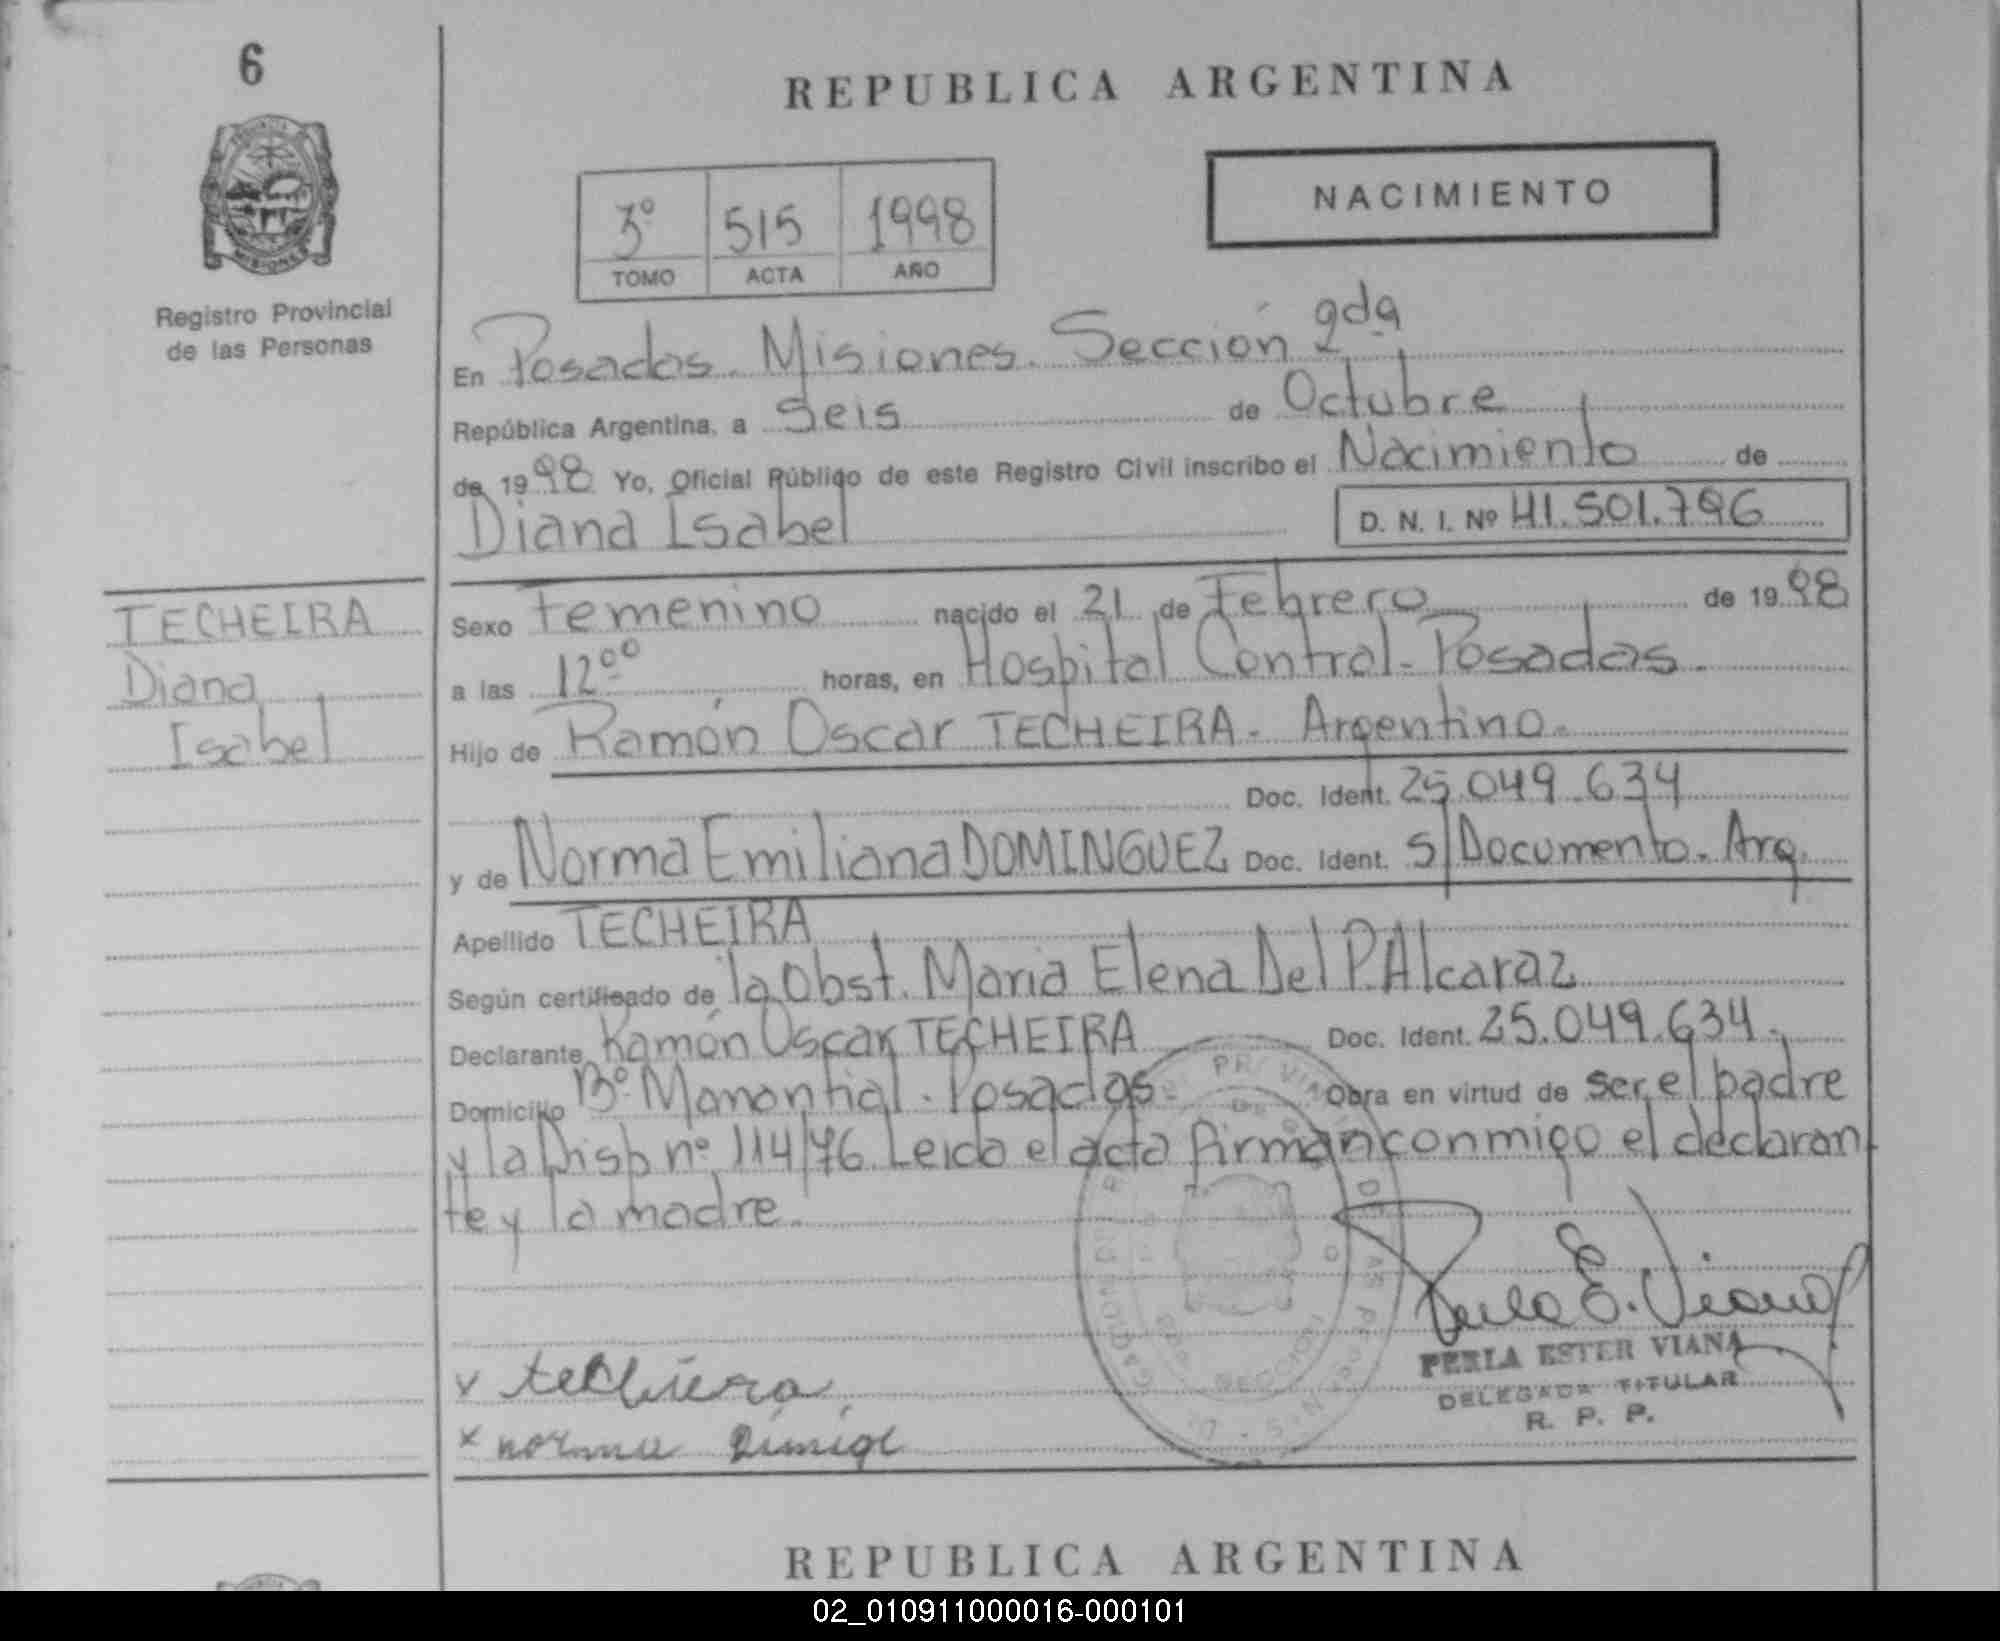 6
REPUBLICA ARGENTINA
NACIMIENTO
3º 515 1998
TOMO ACTA AÑO
Registro Provincial
de las Personas
En Posadas. Misiones. Sección 2da
República Argentina, a Seis de Octubre
de 1998 Yo, Oficial Público de este Registro Civil inscribo el Nacimiento de
Diana Isabel D. N. I. Nº 41.501.796
TECHEIRA
Diana
Isabel
Sexo Femenino nacido el 21 de Febrero de 1998
a las 12⁰⁰ horas, en Hospital Central. Posadas.
Hijo de Ramón Oscar TECHEIRA. Argentino.
Doc. Ident. 25.049.634
y de Norma Emiliana DOMINGUEZ Doc. Ident. S/Documento. Arg.
Apellido TECHEIRA
Según certificado de la Obst. Maria Elena Del P. Alcaraz
Declarante Ramón Oscar TECHEIRA Doc. Ident. 25.049.634.
Domicilio Bº. Manantial. Posadas. Obra en virtud de ser el padre
y la Disp nº 114/76 Leida el acta firman conmigo el declaran
te y la madre.
Perla E. Viana
PERLA ESTER VIANA
DELEGADA TITULAR
R. P. P.
x techeira
x norma
REPUBLICA ARGENTINA
02_010911000016-000101